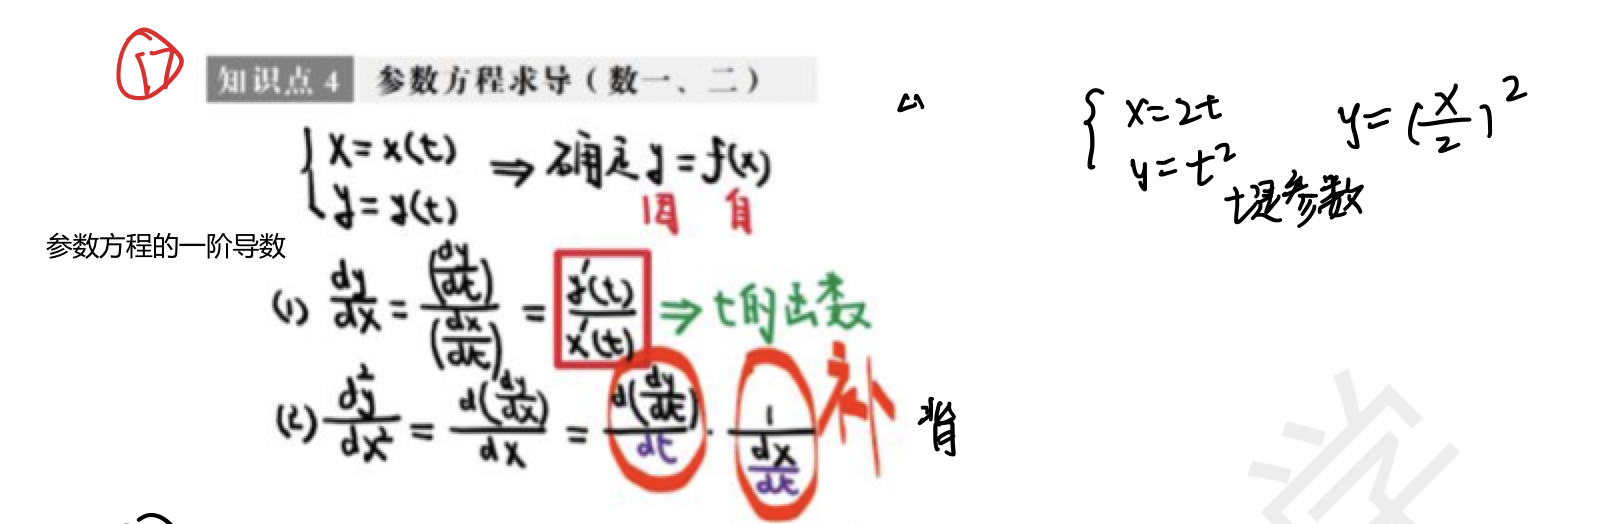 17
知识点 4 参数方程求导（数一、二）
{ x = x(t)
y = y(t)
⇒ 确定 y = f(x)
因 自
参数方程的一阶导数
(1) dy/dx = (dy/dt)/(dx/dt) = y'(t)/x'(t) ⇒ t的出数
(2) d²y/dx² = d(dy/dx)/dx = d(dy/dt)/dt · 1/(dx/dt) 补 背
{ x=2t
y=t²
y=(x/2)²
t是参数